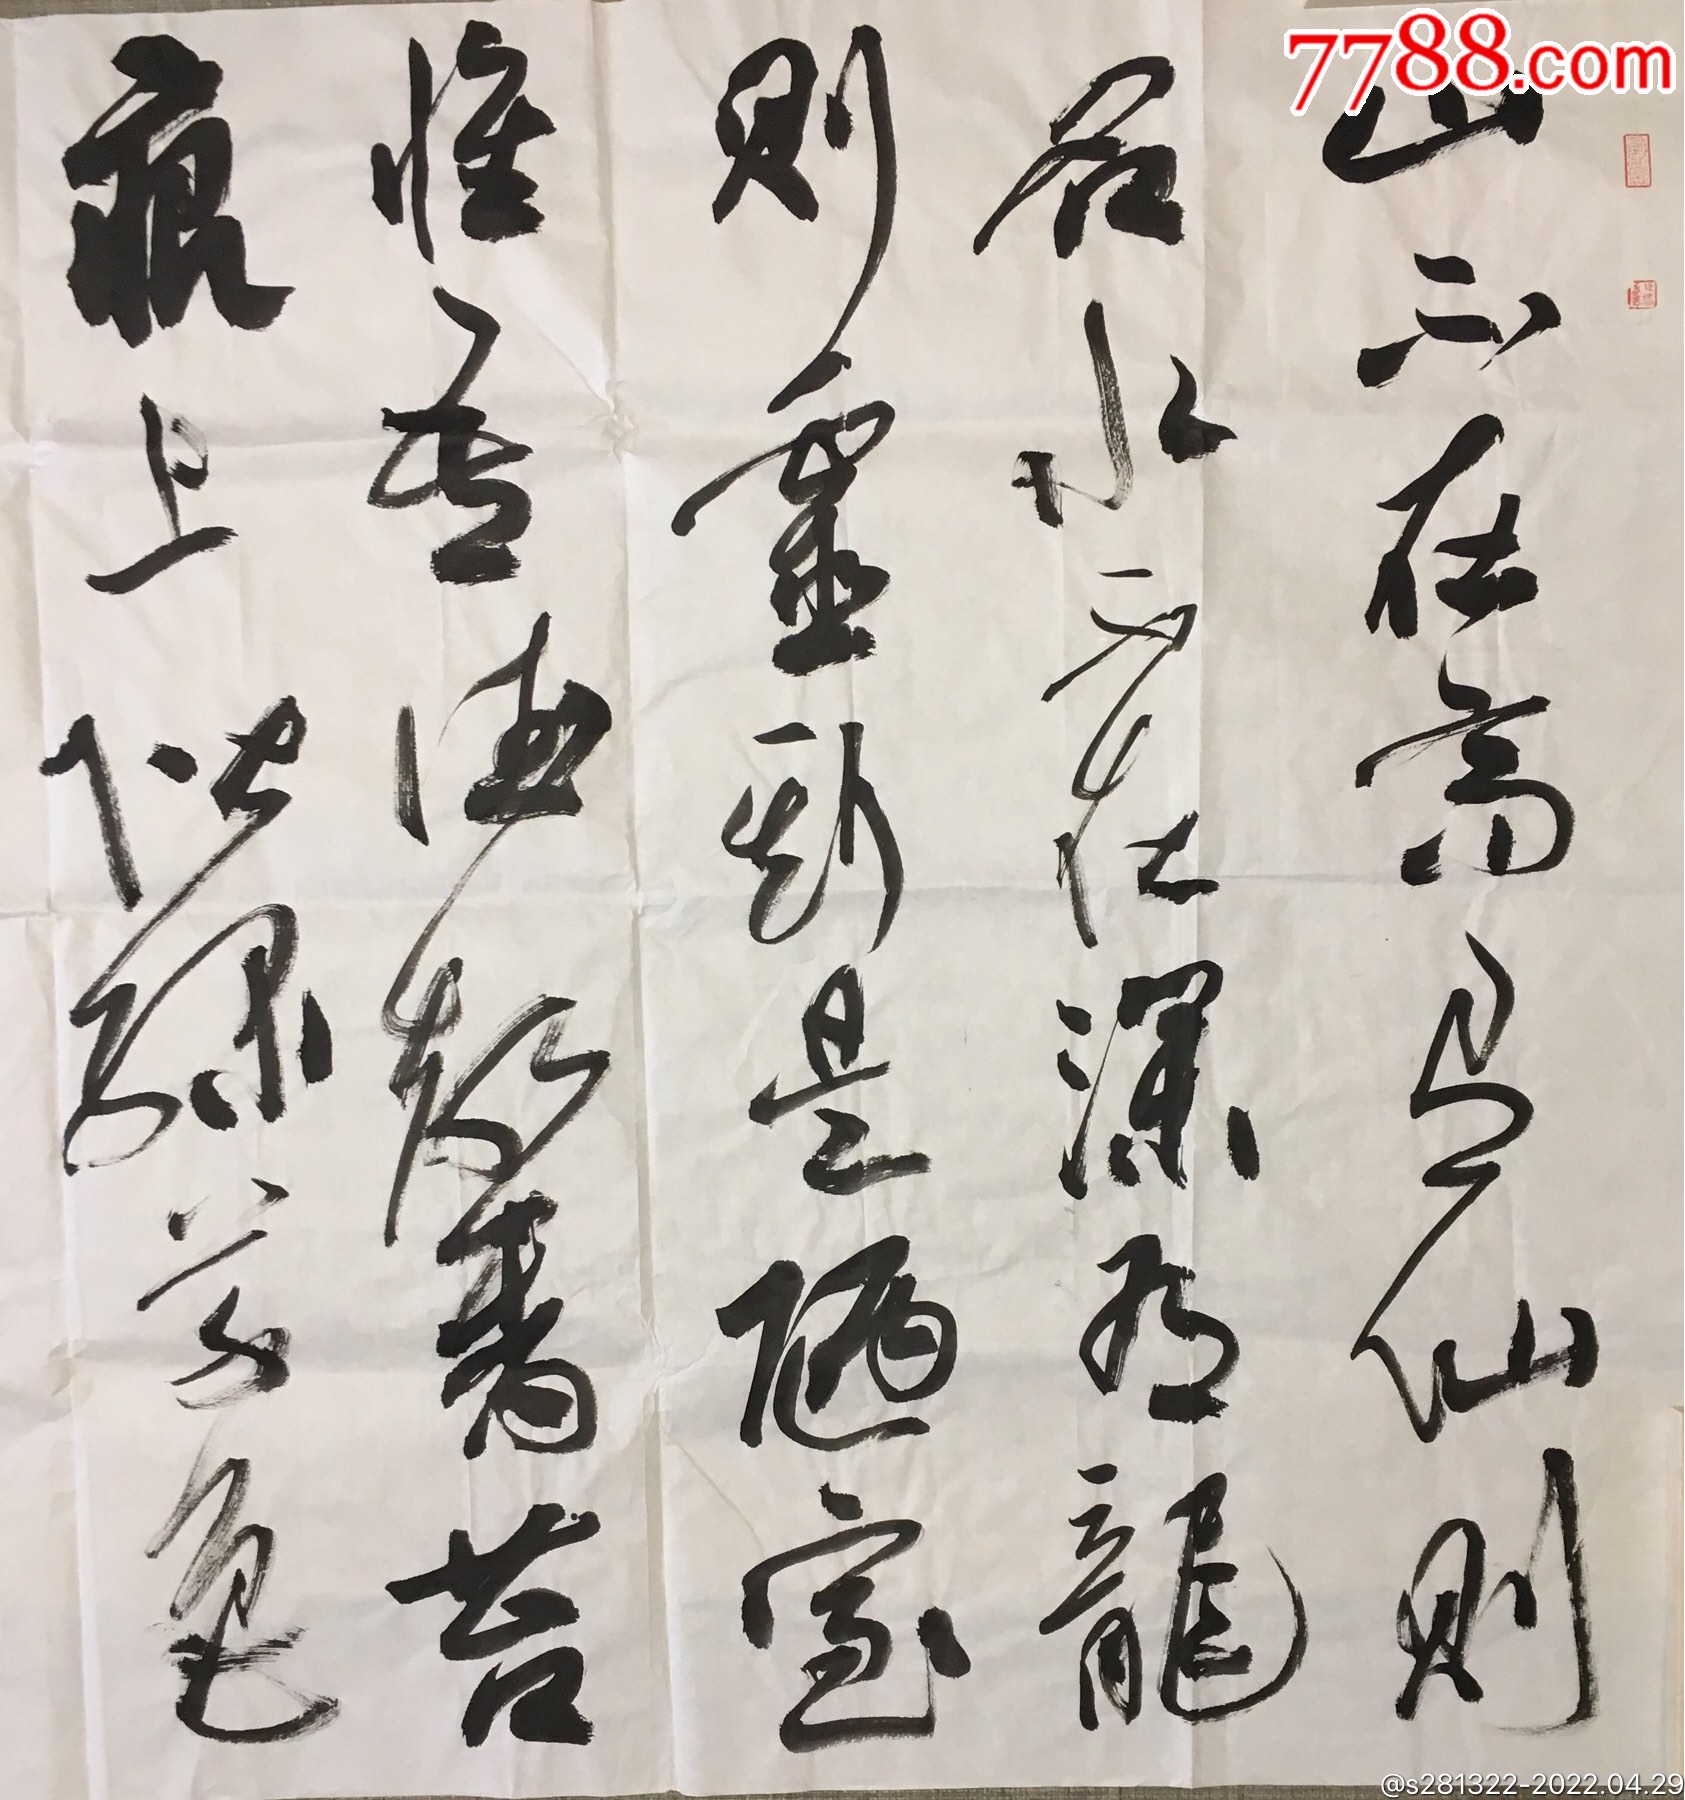 7788.com
山不在高有仙則
名水不在深有龍
則靈斯是陋室
惟吾德馨苔
痕上階綠草色
@s281322-2022.04.29